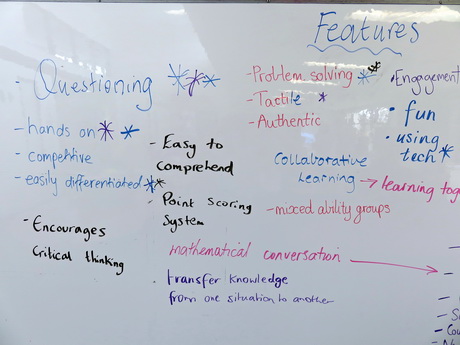 Features
- Questioning
- hands on
- competitive
- easily differentiated
- Encourages
Critical thinking
- Easy to
comprehend
- Point Scoring
System
- Problem solving
- Tactile
- Authentic
Collaborative
Learning → learning tog
- mixed ability groups
mathematical conversation
transfer knowledge
from one situation to another
• Engagement
• fun
• using
tech